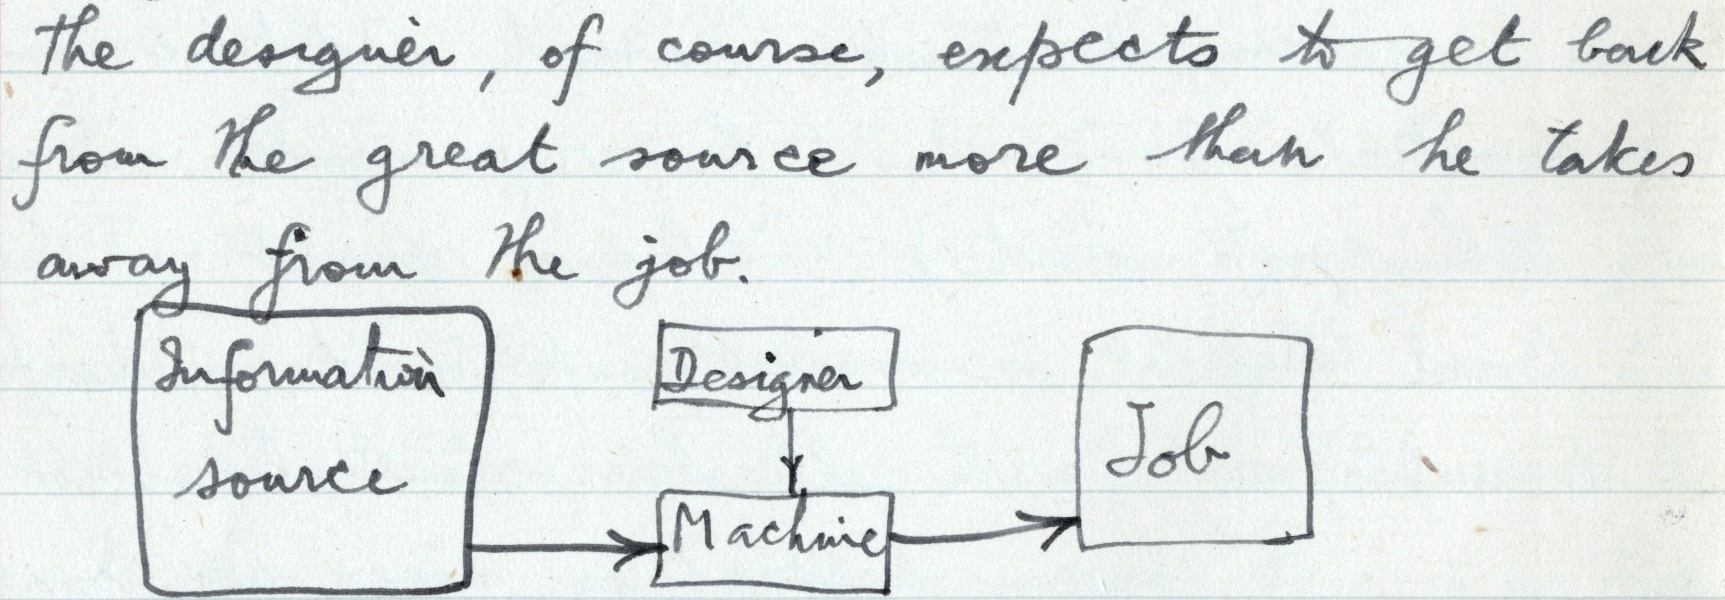 the designer, of course, expects to get back
from the great source more than he takes
away from the job.
Information
source
Designer
Machine
Job